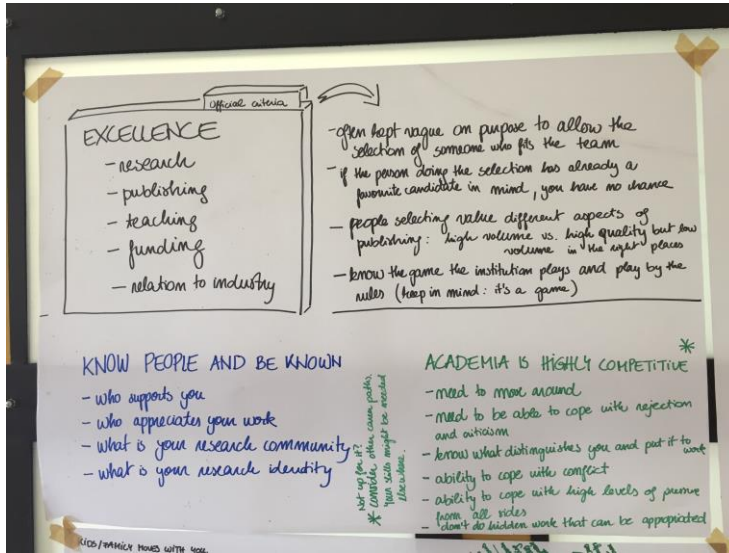 Official criteria
EXCELLENCE
- research
- publishing
- teaching
- funding
- relation to industry
- often kept vague on purpose to allow the
selection of someone who fits the team
- if the person doing the selection has already a
favourite candidate in mind, you have no chance
- people selecting value different aspects of
publishing: high volume vs. high quality but low
volume in the right places
- know the game the institution plays and play by the
rules (keep in mind: it's a game)
KNOW PEOPLE AND BE KNOWN
- who supports you
- who appreciates your work
- what is your research community
- what is your research identity
Not up for it?
* consider other career paths.
Your skills might be needed
elsewhere.
*
ACADEMIA IS HIGHLY COMPETITIVE
- need to move around
- need to be able to cope with rejection
and criticism
- know what distinguishes you and put it to work
- ability to cope with conflict
- ability to cope with high levels of
from all sides
- don't do hidden work that can be appropriated
KIDS/FAMILY MOVES WITH YOU